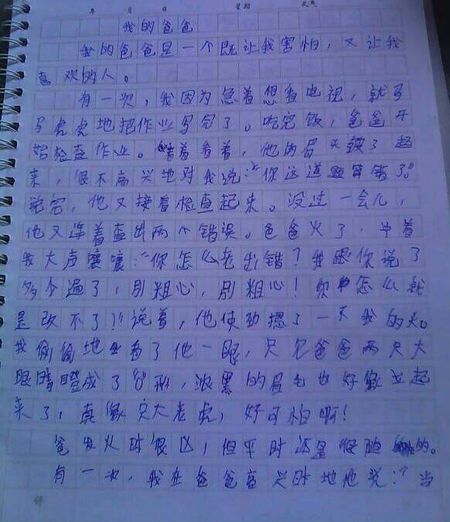 年 月 日 星期 天气
我的爸爸
我的爸爸是一个既让我害怕，又让我
喜欢的人。
有一次，我因为急着想看电视，就马
马虎虎地把作业写完了。吃完饭，爸爸开
始检查作业。看着看着，他的眉头皱了起
来，很不高兴地对我说：“你这道题算错了。”
说完，他又接着检查起来。没过一会儿，
他又连着查出两个错误。爸爸火了，
我大声嚷嚷：“你怎么老出错？我跟你说了
多少遍了，别粗心，别粗心！你怎么就
是改不了！”说着，他使劲摁了一下我的头。
我偷偷地看了他一眼，只见爸爸两只大
眼睛瞪成了“0”形，浓黑的眉毛也好像立起
来了，真像只大老虎，好可怕啊！
爸发火时很凶，但平时还是很的。
有一次，我在爸爸高兴时地他说：“当